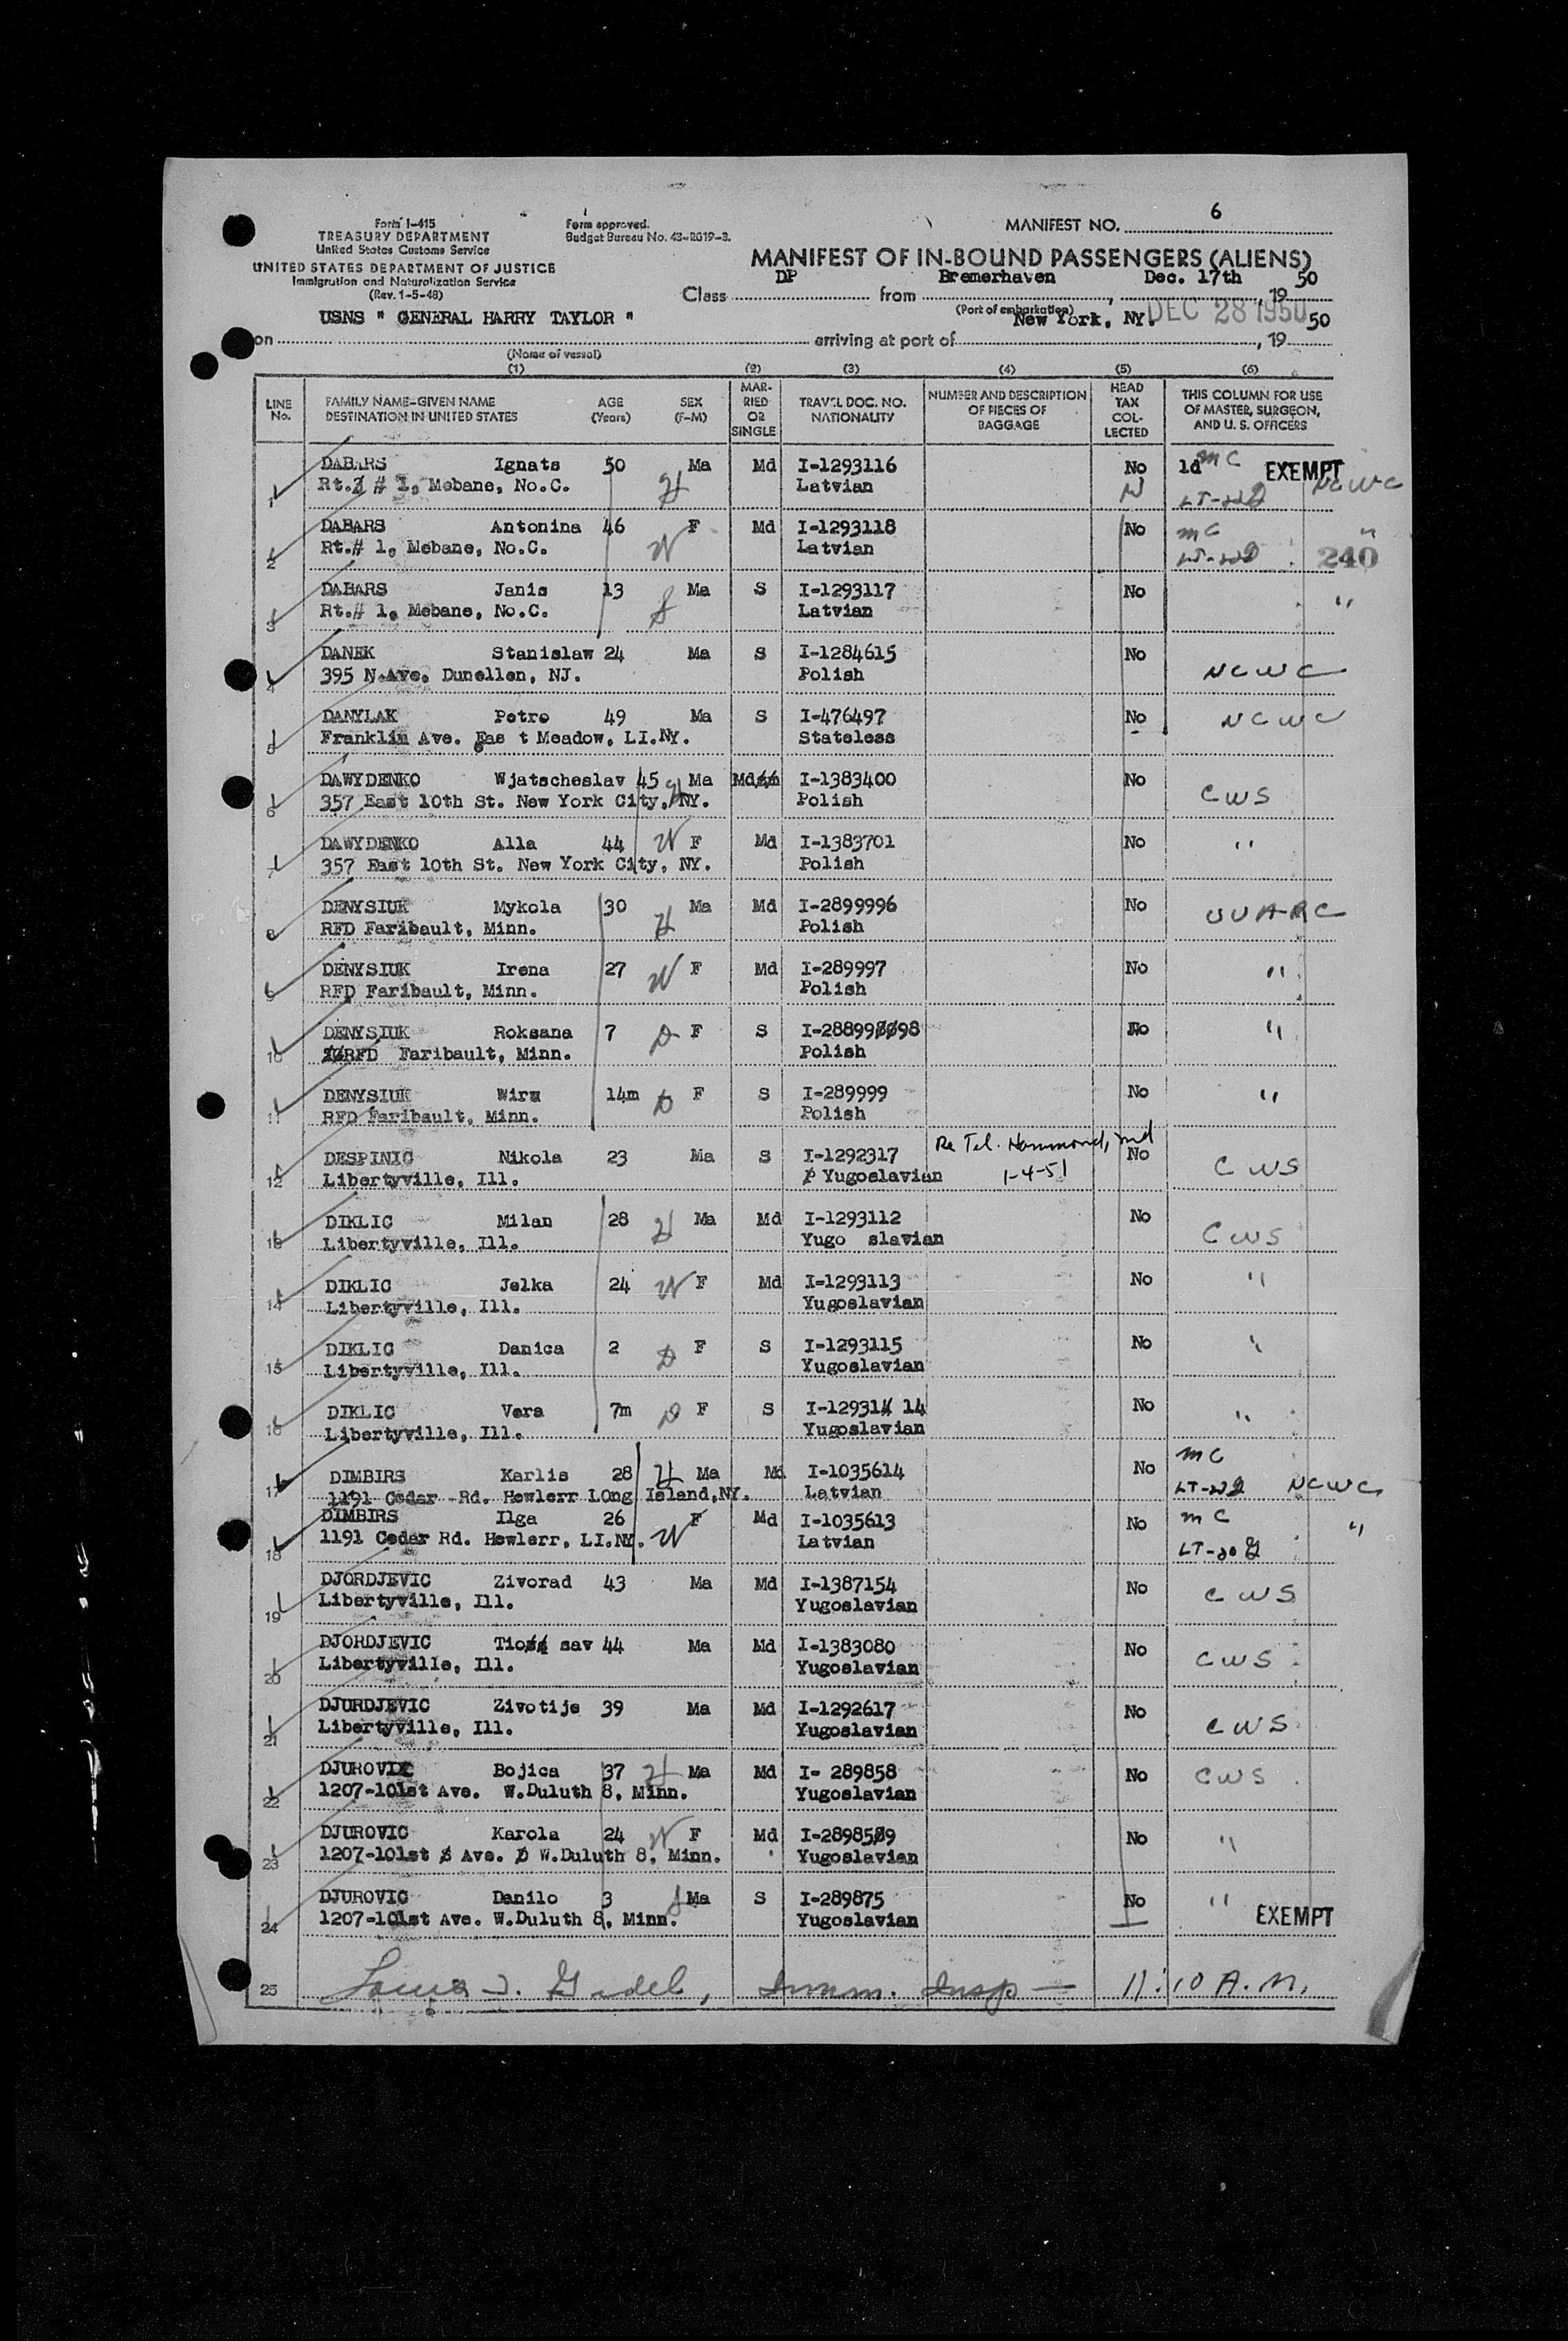 6
Form I-415
TREASURY DEPARTMENT
United States Customs Service
UNITED STATES DEPARTMENT OF JUSTICE
Immigration and Naturalization Service
(Rev. 1-5-48)
Form approved.
Budget Bureau No. 43-R019-3.
MANIFEST NO.
MANIFEST OF IN-BOUND PASSENGERS (ALIENS)
Class DP from Bremerhaven, Dec. 17th, 1950
(Port of embarkation)
on USNS " GENERAL HARRY TAYLOR " arriving at port of New York, NY. DEC 28 1950, 1950
(Name of vessel)
(1) (2) (3) (4) (5) (6)
LINE No. FAMILY NAME-GIVEN NAME DESTINATION IN UNITED STATES AGE (Years) SEX (F-M) MARRIED OR SINGLE TRAVEL DOC. NO. NATIONALITY NUMBER AND DESCRIPTION OF PIECES OF BAGGAGE HEAD TAX COLLECTED THIS COLUMN FOR USE OF MASTER, SURGEON, AND U. S. OFFICERS
1 DABARS Ignats 50 H Ma Md I-1293116 No 1d MC EXEMPT NCWC
Rt. # 1, Mebane, No.C. Latvian
2 DABARS Antonina 46 W F Md I-1293118 No MC "
Rt.# 1, Mebane, No.C. Latvian 240
3 DABARS Janis 13 S Ma S I-1293117 No "
Rt.# 1, Mebane, No.C. Latvian
DANEK Stanislaw 24 Ma S I-1284615 No NCWC
395 N.Ave. Dunellen, NJ. Polish
5 DANYLAK Petro 49 Ma S I-476497 No NCWC
Franklin Ave. Eas t Meadow, LI.NY. Stateless
6 DAWYDENKO Wjatscheslav 45 H Ma Md I-1383400 No CWS
357 East 10th St. New York City, NY. Polish
7 DAWYDENKO Alla 44 W F Md I-1383701 No "
357 East 10th St. New York City, NY. Polish
8 DENYSIUK Mykola 30 H Ma Md I-2899996 No UUARC
RFD Faribault, Minn. Polish
9 DENYSIUK Irena 27 W F Md I-289997 No "
RFD Faribault, Minn. Polish
10 DENYSIUK Roksana 7 D F S No "
RFD Faribault, Minn. Polish
11 DENYSIUK Wira 14m D F S I-289999 No "
RFD Faribault, Minn. Polish
Re Tel. Hammond, Ind
12 DESPINIC Nikola 23 Ma S I-1292317 1-4-51 No CWS
Libertyville, Ill. Yugoslavian
13 DIKLIC Milan 28 H Ma Md I-1293112 No CWS
Libertyville, Ill. Yugo slavian
14 DIKLIC Jelka 24 W F Md I-1293113 No "
Libertyville, Ill. Yugoslavian
15 DIKLIC Danica 2 D F S I-1293115 No "
Libertyville, Ill. Yugoslavian
16 DIKLIC Vera 7m D F S I-12931 14 No "
Libertyville, Ill. Yugoslavian
17 DIMBIRS Karlis 28 H Ma Md I-1035614 No MC NCWC
1191 Cedar Rd. Hewlerr LOng Island,NY. Latvian
18 DIMBIRS Ilga 26 W F Md I-1035613 No MC "
1191 Cedar Rd. Hewlerr, LI.NY. Latvian
19 DJORDJEVIC Zivorad 43 Ma Md I-1387154 No CWS
Libertyville, Ill. Yugoslavian
20 DJORDJEVIC Tio sav 44 Ma Md I-1383080 No CWS
Libertyville, Ill. Yugoslavian
21 DJURDJEVIC Zivotije 39 Ma Md I-1292617 No CWS
Libertyville, Ill. Yugoslavian
22 DJUROVIC Bojica 37 H Ma Md I- 289858 No CWS
1207-101st Ave. W.Duluth 8, Minn. Yugoslavian
23 DJUROVIC Karola 24 W F Md I-289859 No "
1207-101st Ave. W.Duluth 8, Minn. Yugoslavian
24 DJUROVIC Danilo 3 S Ma S I-289875 No " EXEMPT
1207-101st Ave. W.Duluth 8, Minn. Yugoslavian
25 Imm. Insp — 11:10 A.M.